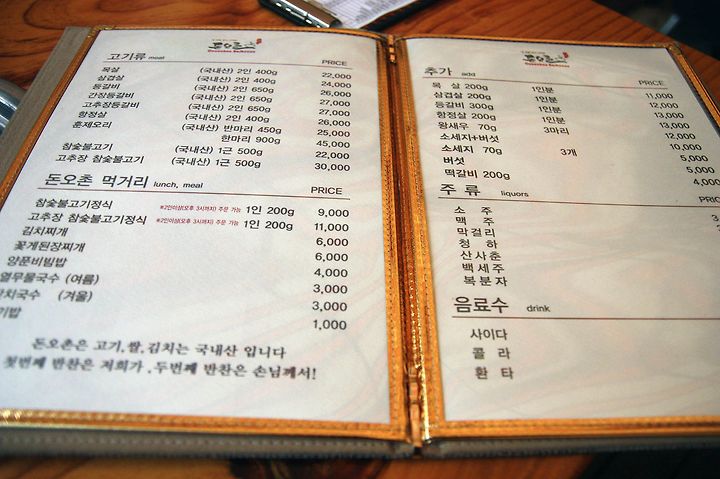 돈오촌
고기류 meat PRICE
목살 (국내산) 2인 400g 22,000
삼겹살 (국내산) 2인 400g 24,000
등갈비 (국내산) 2인 650g 26,000
간장등갈비 (국내산) 2인 650g 27,000
고추장등갈비 (국내산) 2인 650g 27,000
항정살 (국내산) 2인 400g 26,000
훈제오리 (국내산) 반마리 450g 25,000
한마리 900g 45,000
참숯불고기 (국내산) 1근 500g 22,000
고추장 참숯불고기 (국내산) 1근 500g 30,000
돈오촌 먹거리 lunch, meal PRICE
참숯불고기정식 ※2인이상(오후 3시까지) 주문 가능 1인 200g 9,000
고추장 참숯불고기정식 ※2인이상(오후 3시까지) 주문 가능 1인 200g 11,000
김치찌개 6,000
꽃게된장찌개 6,000
양푼비빔밥 4,000
열무물국수 (여름) 3,000
잔치국수 (겨울) 3,000
기밥 1,000
돈오촌은 고기,쌀,김치는 국내산 입니다
첫번째 반찬은 저희가 , 두번째 반찬은 손님께서!
돈오촌
추가 add PRICE
목 살 200g 1인분 11,000
삼겹살 200g 1인분 12,000
등갈비 300g 1인분 13,000
항정살 200g 1인분 13,000
왕새우 70g 3마리 12,000
소세지+버섯 10,000
소세지 70g 3개 5,000
버섯 5,000
떡갈비 200g 4,000
주 류 liquors PRIC
소 주
맥 주
막걸리
청 하
산사춘
백세주
복분자
음료수 drink
사이다
콜 라
환 타